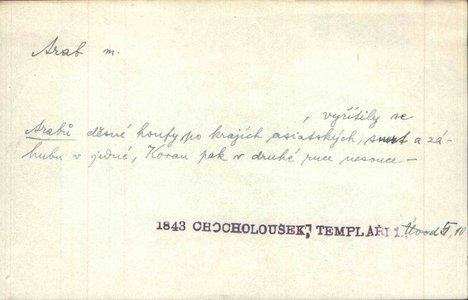 Arab m.
, vyřítily se
Arabů děsné houfy po krajích asiatských, smrt a zá-
hubu v jedné, Koran pak v druhé ruce nesouce –
1843 CHOCHOLOUŠEK, TEMPLÁŘI 1. Úvod